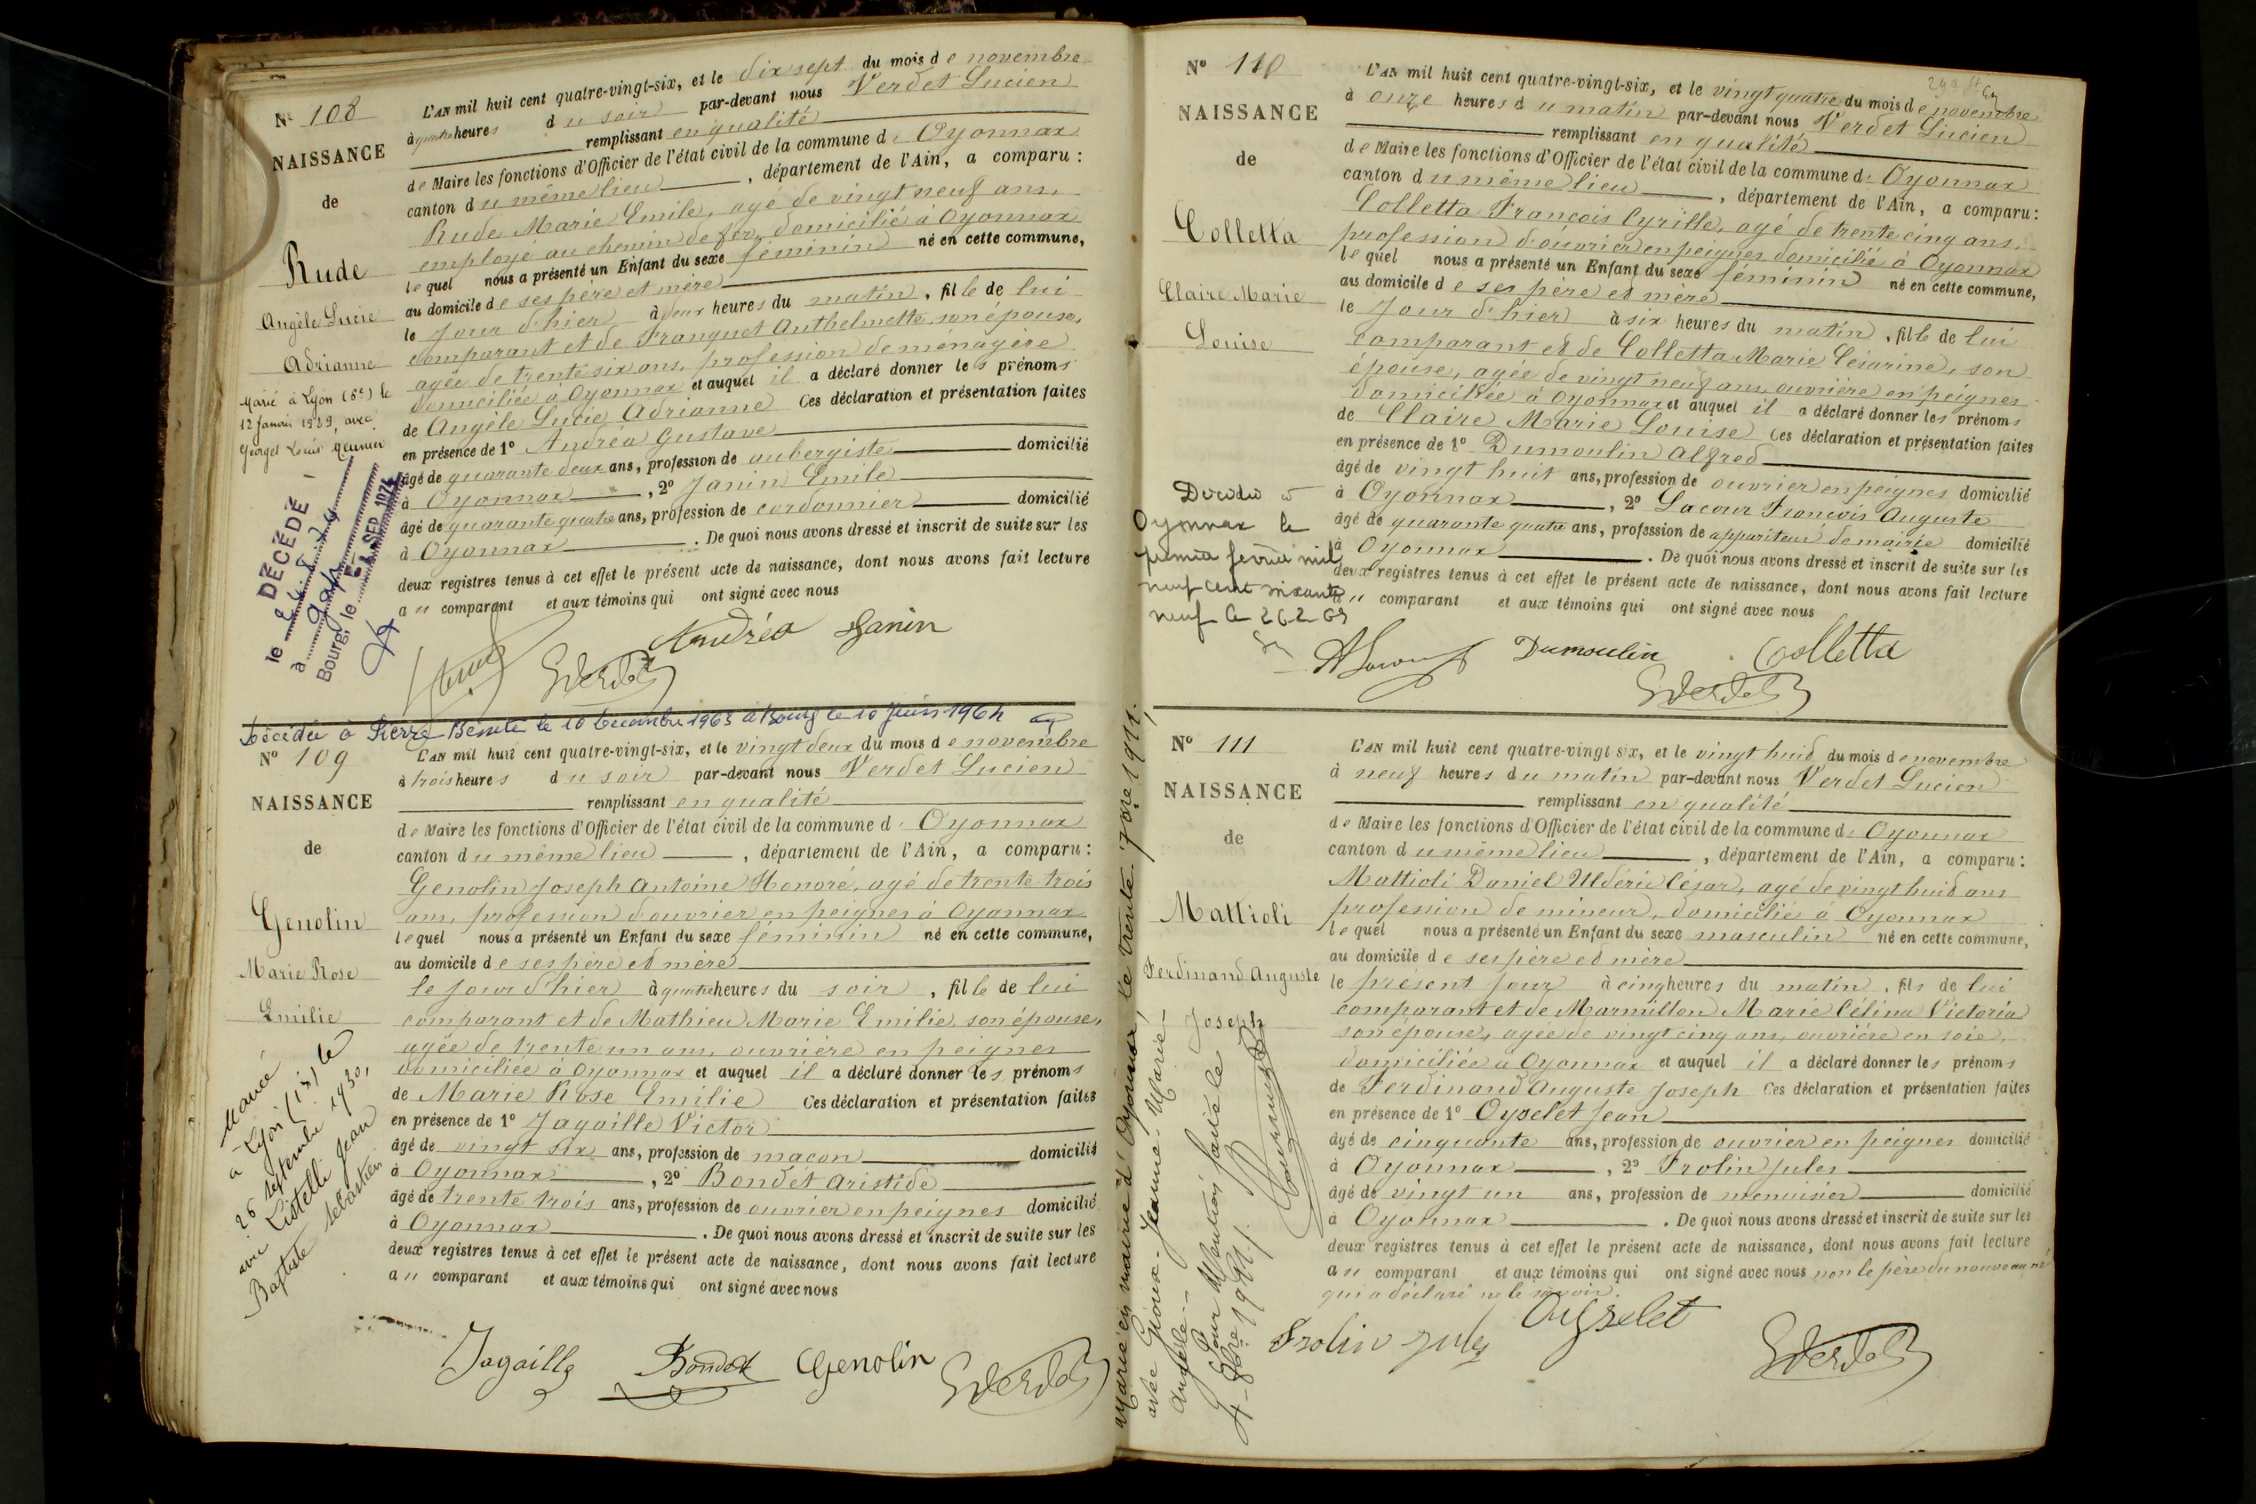 N° 108
NAISSANCE
de
Rude
Angèle Lucie
Adrianne
Marié à Lyon (6e) le
12 janvier 1929, avec
Georges Louis
DÉCÉDÉ
le
à Gap
Bourg, le SEP. 1974
L'AN mil huit cent quatre-vingt-six, et le dix sept du mois de novembre
à quatre heures du soir par-devant nous Verdet Lucien
remplissant en qualité
de Maire les fonctions d'Officier de l'état civil de la commune d' Oyonnax
canton du même lieu, département de l'Ain, a comparu :
Rude Marie Emile, agé de vingt neuf ans,
employé au chemin de fer, domicilié à Oyonnax
lequel nous a présenté un Enfant du sexe féminin né en cette commune,
au domicile de ses père et mère
le jour d'hier à deux heures du matin, fille de lui
comparant et de Franquet Anthelmette son épouse,
agée de trente six ans, profession de ménagère
domiciliée à Oyonnax et auquel il a déclaré donner les prénoms
de Angèle Lucie Adrianne Ces déclaration et présentation faites
en présence de 1° Andréa Gustave
âgé de quarante deux ans, profession de aubergiste domicilié
à Oyonnax, 2° Janin Emile
âgé de quarante quatre ans, profession de cordonnier domicilié
à Oyonnax. De quoi nous avons dressé et inscrit de suite sur les
deux registres tenus à cet effet le présent acte de naissance, dont nous avons fait lecture
au comparant et aux témoins qui ont signé avec nous
Andréa Janin
Verdet
Décédée à Pierre Bénite le 10 décembre 1963 à Bourg le 10 juin 1964
N° 109
NAISSANCE
de
Genolin
Marie Rose
Emilie
Mariée
à Lyon le
26 septembre 1930,
avec Listelli Jean
Baptiste Sébastien
L'AN mil huit cent quatre-vingt-six, et le vingt deux du mois de novembre
à trois heures du soir par-devant nous Verdet Lucien
remplissant en qualité
de Maire les fonctions d'Officier de l'état civil de la commune d' Oyonnax
canton du même lieu, département de l'Ain, a comparu :
Genolin Joseph Antoine Honoré, agé de trente trois
ans, profession d'ouvrier en peignes à Oyonnax
lequel nous a présenté un Enfant du sexe féminin né en cette commune,
au domicile de ses père et mère
le jour d'hier à quatre heures du soir, fille de lui
comparant et de Mathieu Marie Emilie son épouse,
agée de trente un ans, ouvrière en peignes
domiciliée à Oyonnax et auquel il a déclaré donner les prénoms
de Marie Rose Emilie Ces déclaration et présentation faites
en présence de 1° Jagaille Victor
âgé de vingt six ans, profession de macon domicilié
à Oyonnax, 2° Bondet Aristide
âgé de trente trois ans, profession de ouvrier en peignes domicilié
à Oyonnax. De quoi nous avons dressé et inscrit de suite sur les
deux registres tenus à cet effet le présent acte de naissance, dont nous avons fait lecture
au comparant et aux témoins qui ont signé avec nous
Jagaille Bondet Genolin Verdet
N° 110
NAISSANCE
de
Colletta
Claire Marie
Louise
Décédée à
Oyonnax le
premier février mil
neuf cent soixante
neuf le 26.2.69
L'AN mil huit cent quatre-vingt-six, et le vingt quatre du mois de novembre
à onze heures du matin par-devant nous Verdet Lucien
remplissant en qualité
de Maire les fonctions d'Officier de l'état civil de la commune d' Oyonnax
canton du même lieu, département de l'Ain, a comparu :
Colletta François Cyrille, agé de trente cinq ans,
profession d'ouvrier en peignes domicilié à Oyonnax
lequel nous a présenté un Enfant du sexe féminin né en cette commune,
au domicile de ses père et mère
le jour d'hier à six heures du matin, fille de lui
comparant et de Colletta Marie Césarine, son
épouse, agée de vingt neuf ans ouvrière en peignes
domiciliée à Oyonnax et auquel il a déclaré donner les prénoms
de Claire Marie Louise Ces déclaration et présentation faites
en présence de 1° Dumoulin Alfred
âgé de vingt huit ans, profession de ouvrier en peignes domicilié
à Oyonnax, 2° Lacour François Auguste
âgé de quarante quatre ans, profession de appariteur de mairie domicilié
à Oyonnax. De quoi nous avons dressé et inscrit de suite sur les
deux registres tenus à cet effet le présent acte de naissance, dont nous avons fait lecture
au comparant et aux témoins qui ont signé avec nous
ALacour Dumoulin Colletta
Verdet
N° 111
NAISSANCE
de
Mattioli
Ferdinand Auguste
Joseph
Marié en mairie d'Oyonnax, le trente 7bre 1911,
avec Jeanne-Marie-
Angèle.-
Pour Mention faite le
4-8bre 1911.
L'AN mil huit cent quatre-vingt six, et le vingt huit du mois de novembre
à neuf heures du matin par-devant nous Verdet Lucien
remplissant en qualité
de Maire les fonctions d'Officier de l'état civil de la commune d' Oyonnax
canton du même lieu, département de l'Ain, a comparu :
Mattioli Daniel Uldéric César, agé de vingt huit ans
profession de mineur, domicilié à Oyonnax
lequel nous a présenté un Enfant du sexe masculin né en cette commune,
au domicile de ses père et mère
le présent jour à cinq heures du matin, fils de lui
comparant et de Marmillon Marie Célina Victoria
son épouse, agée de vingt cinq ans, ouvrière en soie,
domiciliée à Oyonnax et auquel il a déclaré donner les prénoms
de Ferdinand Auguste Joseph Ces déclaration et présentation faites
en présence de 1° Oyselet Jean
âgé de cinquante ans, profession de ouvrier en peignes domicilié
à Oyonnax, 2° Frolin Jules
âgé de vingt un ans, profession de menuisier domicilié
à Oyonnax. De quoi nous avons dressé et inscrit de suite sur les
deux registres tenus à cet effet le présent acte de naissance, dont nous avons fait lecture
au comparant et aux témoins qui ont signé avec nous non le père du nouveau né
qui a déclaré ne le savoir.
Frolin Jules Oyselet Verdet